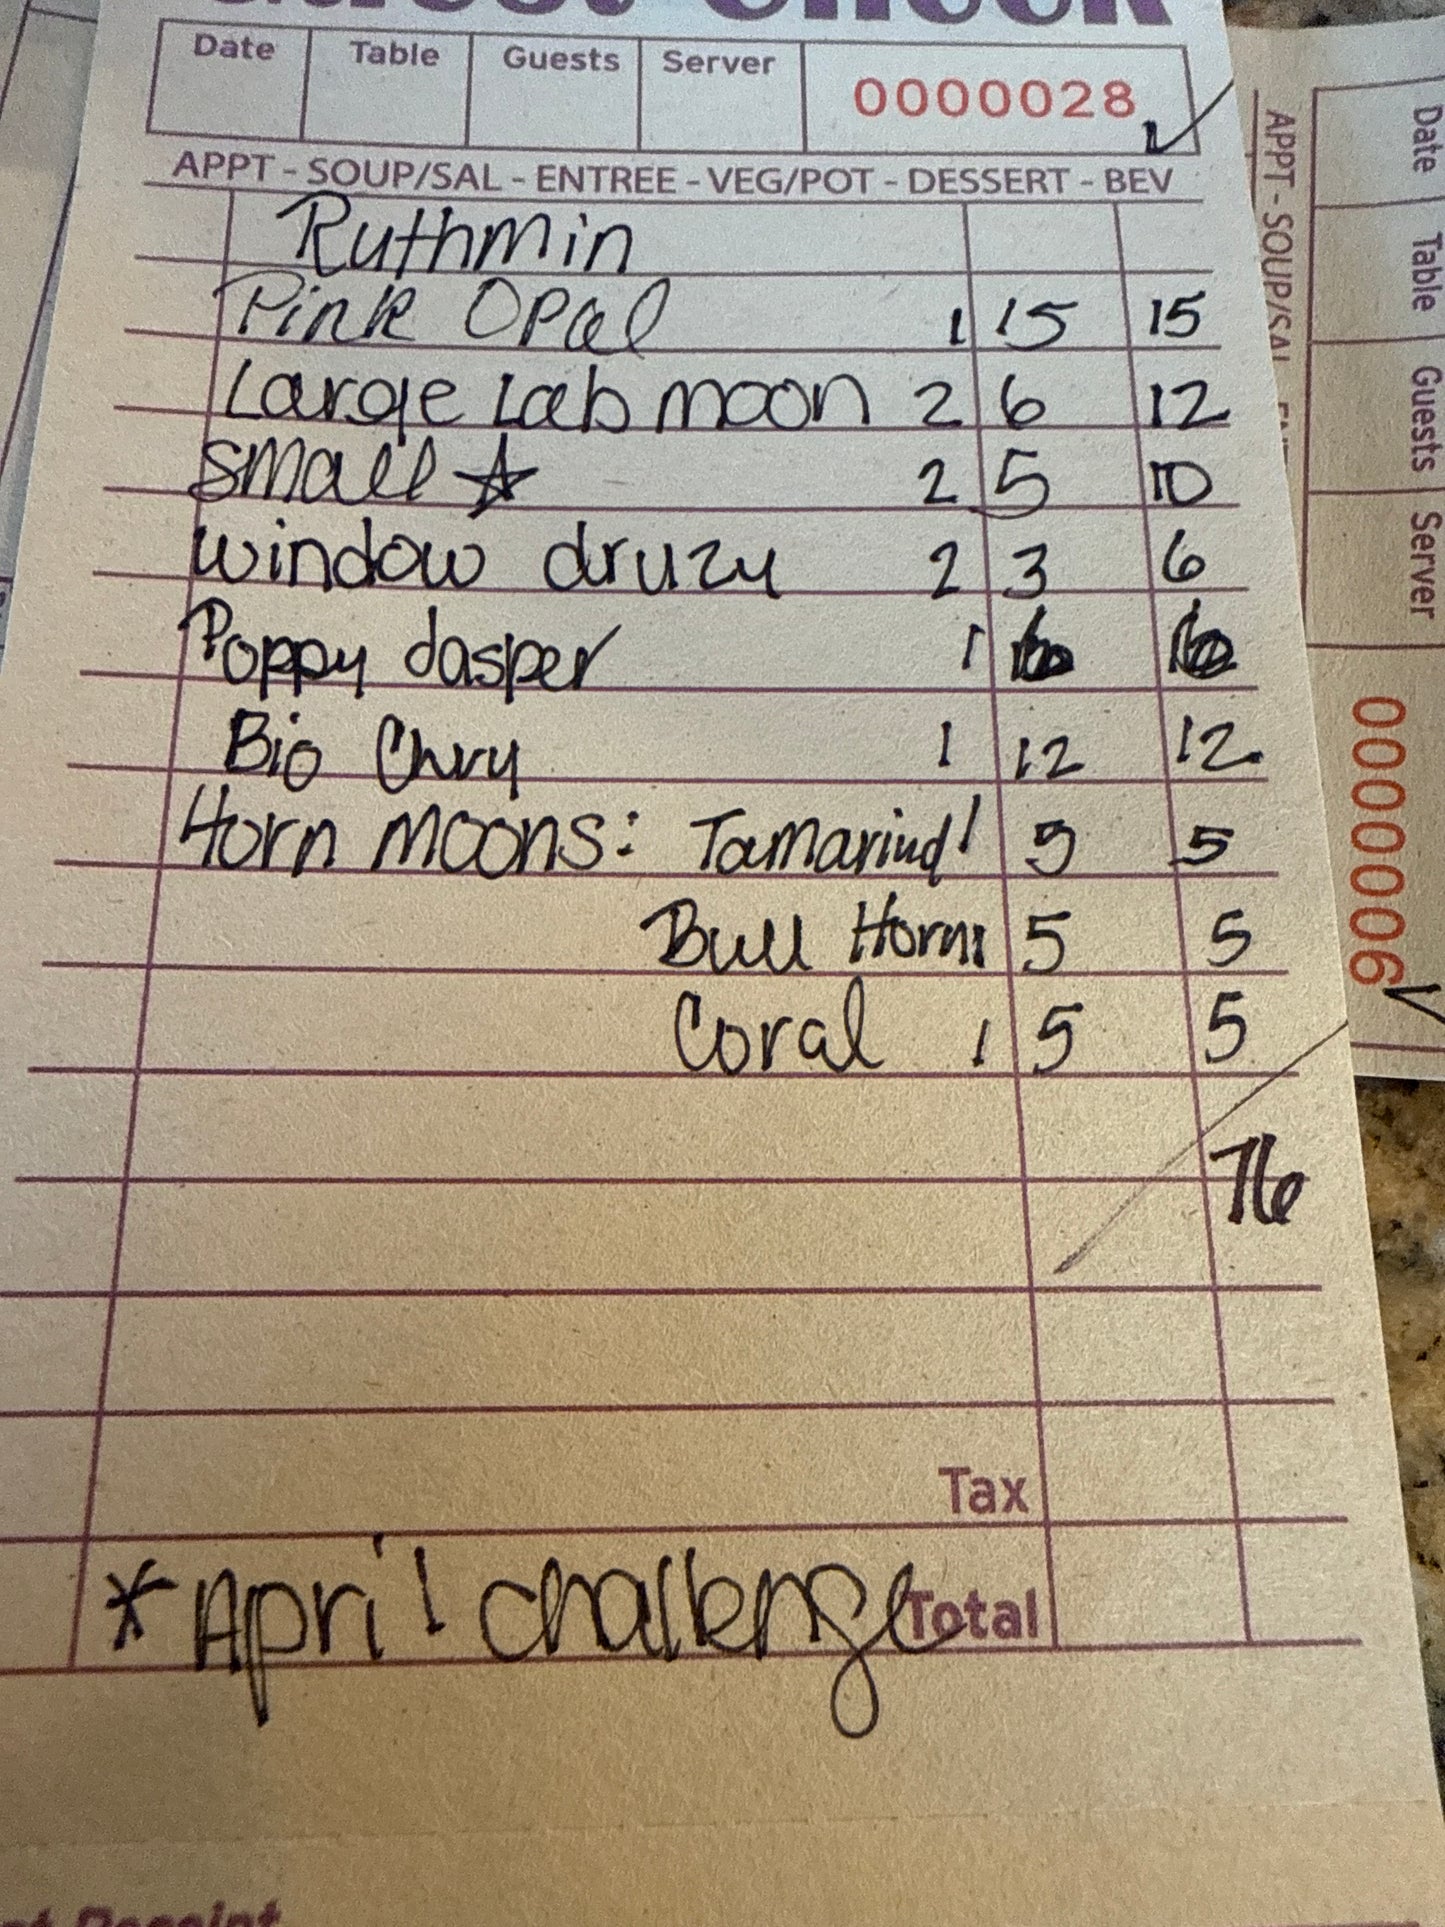 Guest Check
Date Table Guests Server 0000028
APPT - SOUP/SAL - ENTREE - VEG/POT - DESSERT - BEV
Ruthmin
Pink Opal 1 15 15
Large Lab moon 2 6 12
Small ☆ 2 5 10
window druzy 2 3 6
Poppy Jasper 1 6 6
Bio Chry 1 12 12
Horn moons: Tamarind 1 5 5
Bull Horn 1 5 5
Coral 1 5 5
76
Tax
*April challenge
Total
Date Table Guests Server 0000006
APPT - SOUP/SAL
Receipt